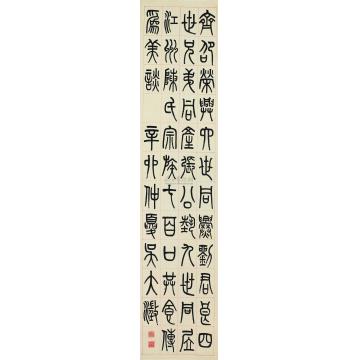 齊邵榮興六世同爨劉君良四
世兄弟同產張公藝九世同居
江州陳氏宗族七百口共食傳
為美談 辛卯仲夏吳大澂